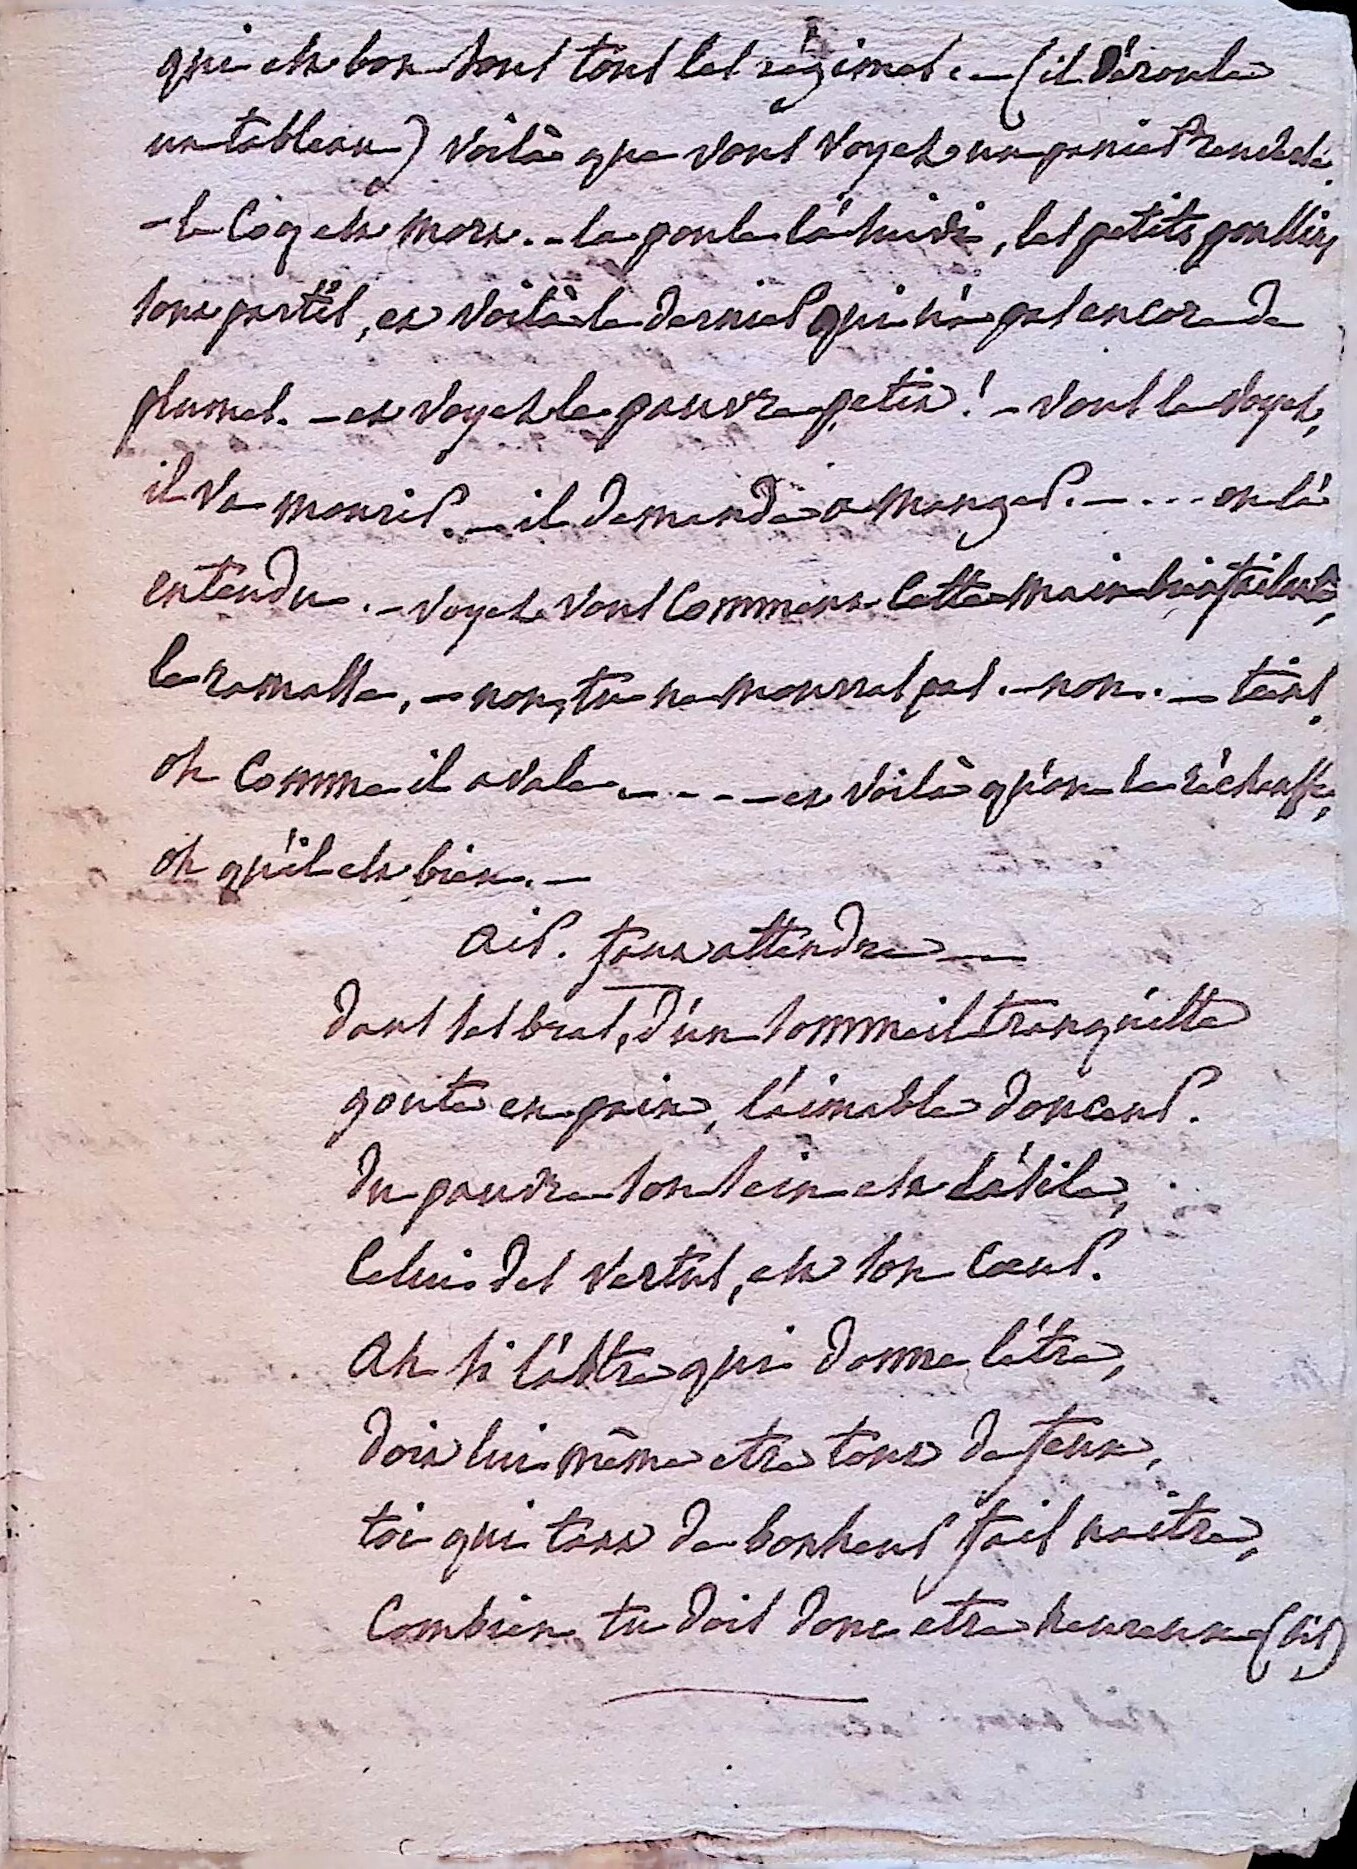 qui est bon sous tous les régimes. — (il déroule
un tableau) voilà que vous voyez un panier renversé.
— le coq est mort. — la poule l'a suivi, les petits poussins
sont partis, et voilà le dernier qui n'a pas encore de
plumes. — et voyez le pauvre petit! — vous le voyez,
il va mourir. — il demande a manger. — ... on l'a
entendu. — voyez vous comment cette main bienfaisante,
le ramasse, — non, tu ne mourras pas. — non. — tiens,
oh comme il avale. - - - - et voilà qu'on le réchauffe,
oh qu'il est bien. —
air. faut attendre —
dans ses bras, d'un sommeil tranquille
goute en paix, l'aimable douceur.
du pauvre son sein est l'asile,
celui des vertus, est son cœur.
Ah si l'astre qui donne l'être,
doit lui même etre tout de feux,
toi qui tant de bonheur fais naitre,
Combien tu dois donc etre heureux (bis)